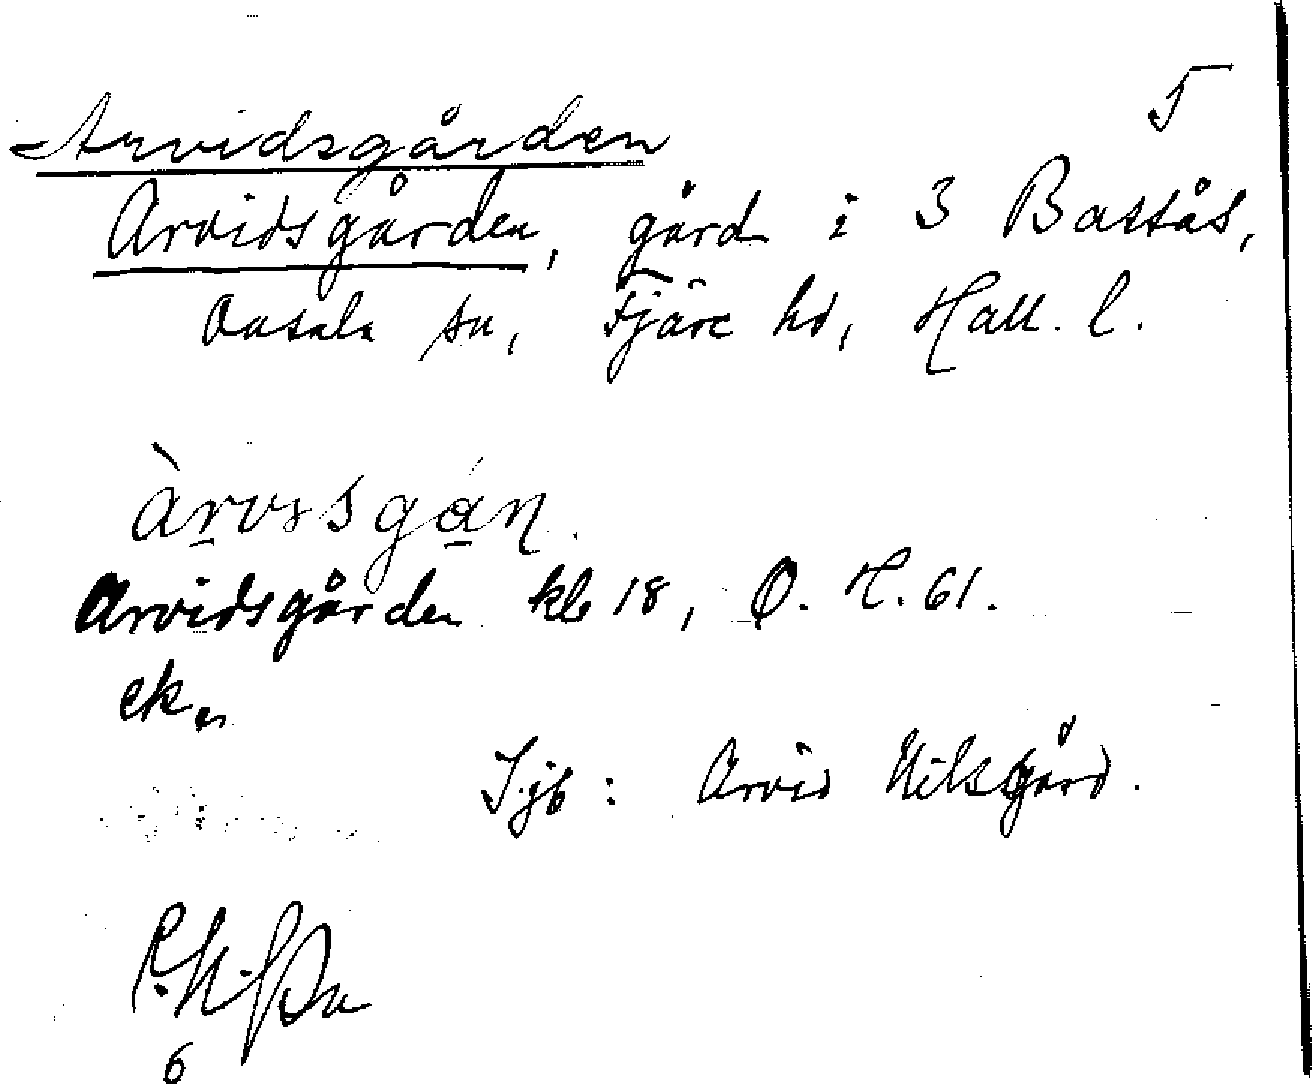 F
Arvidsgården
Arvidsgården, gård i 3 Bassås,
Onsala sn, Fjäre hd, Hall. l.
Arvidsgården kb 18, O. H. 61.
ek.
Jjb: Arvid Nilsgård.
6